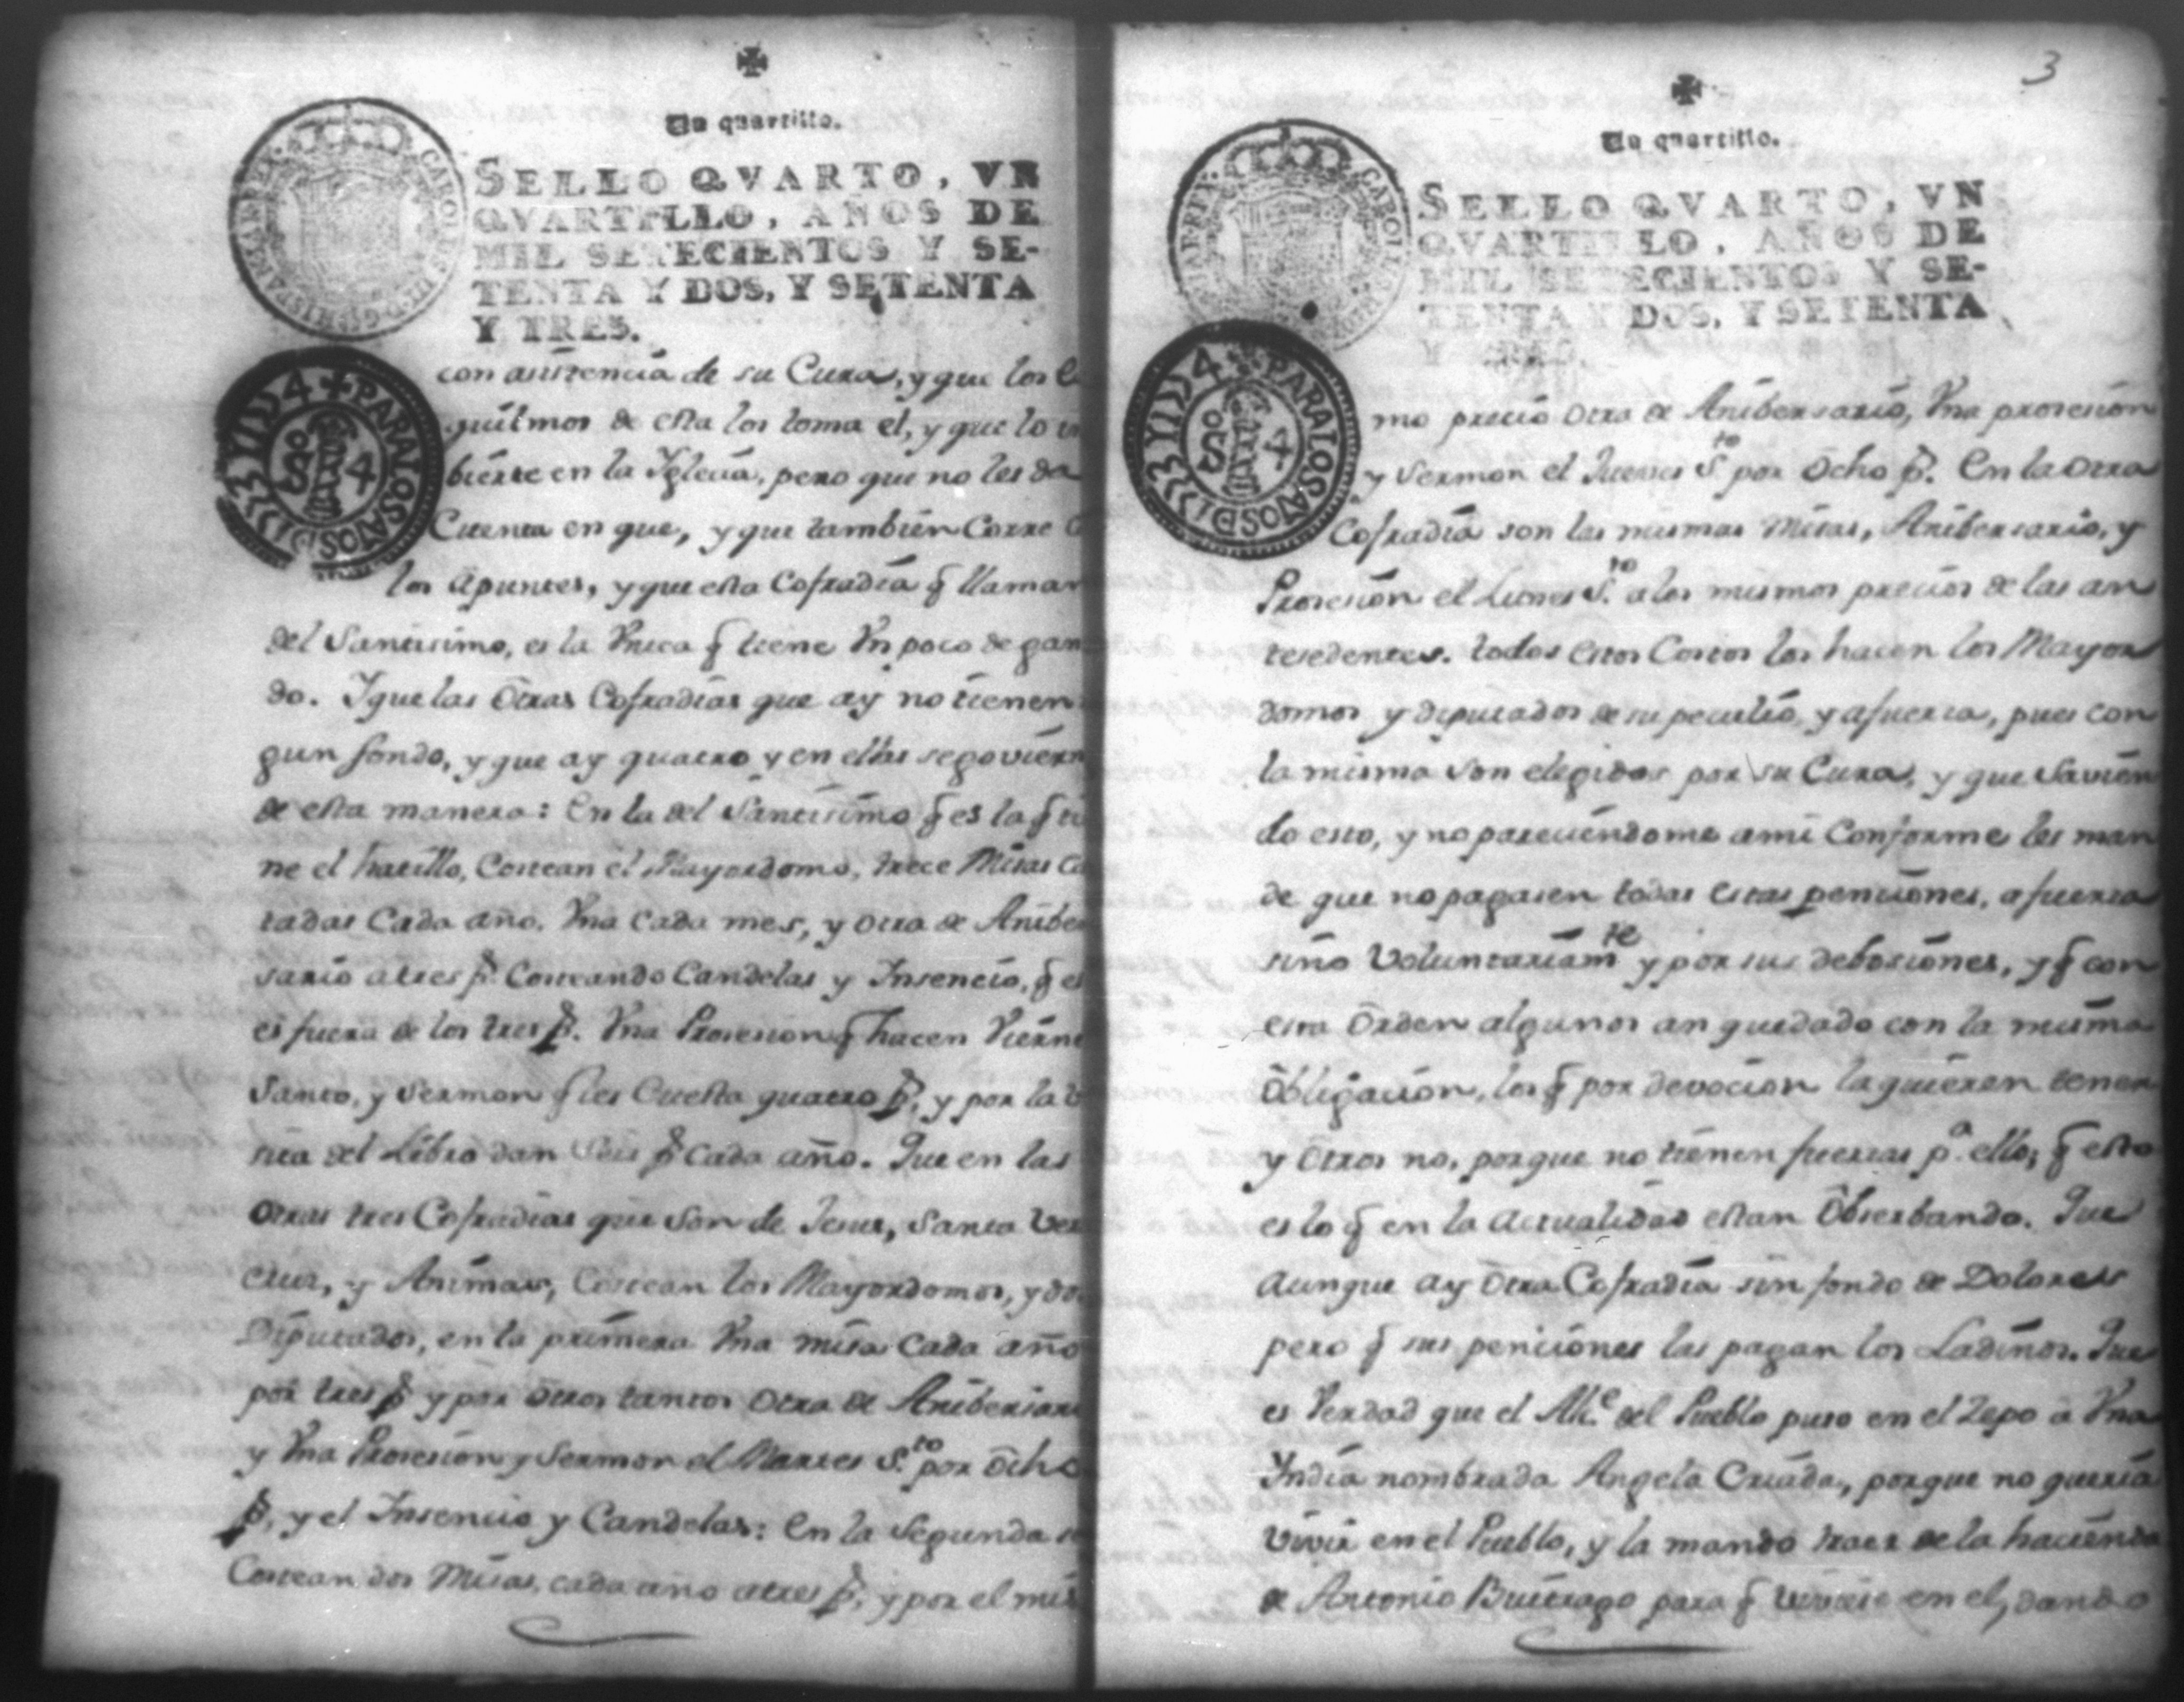 Un quartillo.
SELLO QVARTO, VN
QVARTILLO, AÑOS DE
MIL SETECIENTOS Y SE-
TENTA Y DOS, Y SETENTA
Y TRES.
CAROLUS III D G HISPANIAR REX
PARA LOS AÑOS D
S 4
con asistencia de su Cura, y que los
quitmos de esta los toma el, y que lo in
bierte en la Iglecia, pero que no les da
Cuenta en que, y que tambien Corre
los apuntes, y que esta Cofradia q̃ llaman
del Santisimo, es la Vnica q̃ tiene Vn poco de gan
do. Y que las Otras Cofradias que ay no tienen
gun fondo, y que ay quatro y en ellas se goviern
de esta manera: En la del Santisimo q̃ es la q̃ ti
ne el hatillo, Costean el Mayordomo, trece Misas Ca
tadas Cada año. Vna Cada mes, y otra de Anibe
sario a tres p̃. Costeando Candelas y Insencio, q̃ es
es fuera de los tres p̃. Vna Prosesion q̃ hacen Vierne
Santo, y Sermon q̃ les Cuesta quatro p̃, y por la
sita del Libro dan Seis p̃ Cada año. Que en las
Otras tres Cofradias que Son de Jesus, Santa Ver
Cruz, y Animas, Costean los Mayordomos, y do
Diputados, en la primera Vna misa Cada año
por tres p̃ y por otros tantos Otra de Anibersari
y Vna Prosesion y Sermon el Martes S.to por Ocho
p̃, y el Insencio y Candelas: En la Segunda
Costean dos Misas, cada año a tres p̃, y por el mis
3
Un quartillo.
SELLO QVARTO, VN
QVARTILLO, AÑOS DE
MIL SETECIENTOS Y SE-
TENTA Y DOS, Y SETENTA
Y TRES.
CAROLUS HISPANIAR REX
PARA LOS AÑOS D
S 4
mo precio Otra de Anibersario, Vna prosesion
y Sermon el Jueves S.to por Ocho p̃. En la Otra
Cofradia son las mismas Misas, Anibersario, y
Prosesion el Lunes S.to a los mismos precios de las an
tesedentes. todos estos Costos los hacen los Mayor
domos y diputados de su peculio, y afuerza, pues con
la misma son elegidos por su Cura, y que Savien
do esto, y no pareciendome a mi Conforme les man
de que no pagasen todas estas penciones, afuerza
sino Voluntariam.te y por sus debosiones, y q̃ con
esta Orden algunos an quedado con la misma
Obligacion, los q̃ por devocion la quieren tener
y Otros no, porque no tienen fuerzas p.a ello; q̃ esto
es lo q̃ en la actualidad estan Obserbando. Que
Aunque ay Otra Cofradia sin fondo de Dolores
pero q̃ sus penciones las pagan los Ladinos. Que
es Verdad que el Alc.e del Pueblo puso en el Zepo a Vna
Yndia nombrada Angela Criada, porque no queria
Vivir en el Pueblo, y la mando traer de la hacienda
de Antonio Buitrago para q̃ viviese en el, dando